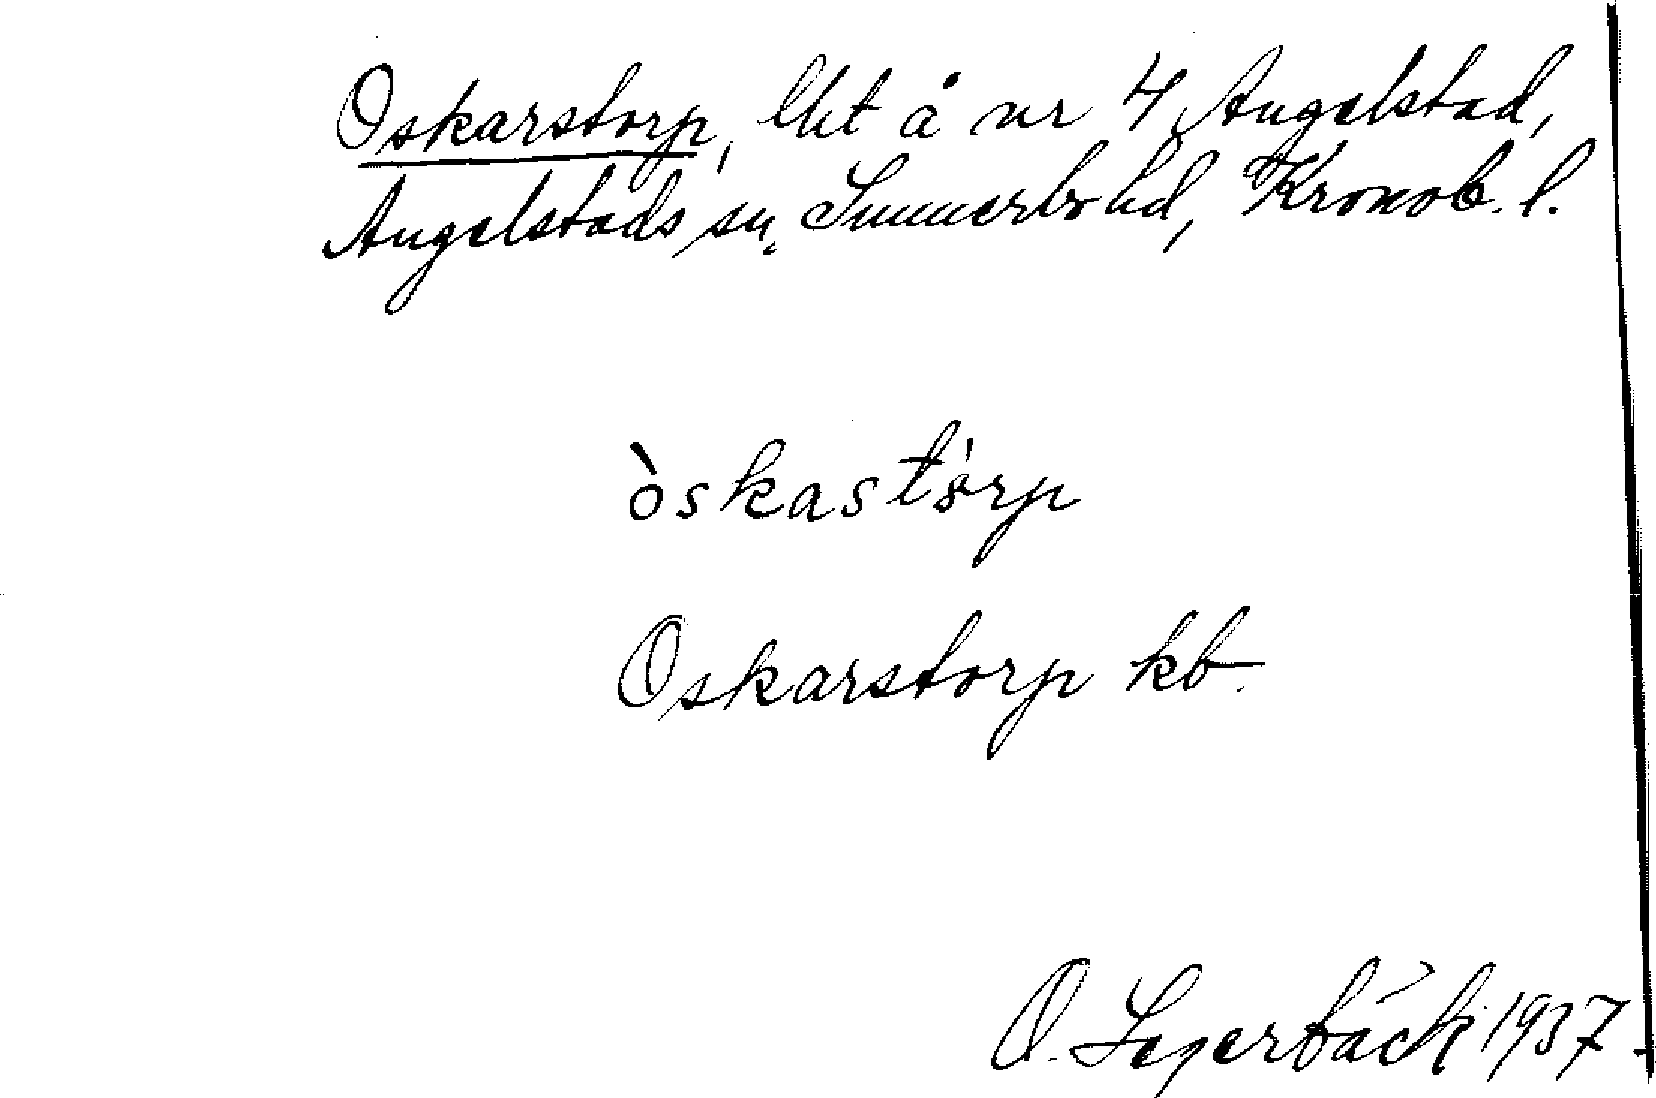 Oskarstorp, lht å nr 4 Angelstad,
Angelstads sn, Sunnerbo hd, Kronob. l.
òskastòrp
Oskarstorp kb.
O. Lagerbäck 1937.